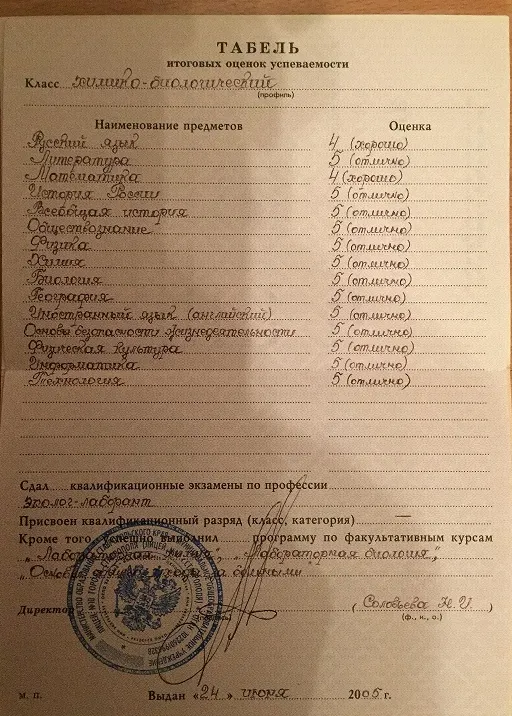 ТАБЕЛЬ
итоговых оценок успеваемости
Класс химико-биологический
(профиль)
Наименование предметов Оценка
Русский язык 4 (хорошо)
Литература 5 (отлично)
Математика 4 (хорошо)
История России 5 (отлично)
Всеобщая история 5 (отлично)
Обществознание 5 (отлично)
Физика 5 (отлично)
Химия 5 (отлично)
Биология 5 (отлично)
География 5 (отлично)
Иностранный язык (английский) 5 (отлично)
Основы безопасности жизнедеятельности 5 (отлично)
Физическая культура 5 (отлично)
Информатика 5 (отлично)
Технология 5 (отлично)
Сдал квалификационные экзамены по профессии
Эколог-лаборант
Присвоен квалификационный разряд (класс, категория) —
Кроме того, успешно выполнил программу по факультативным курсам
„Лабораторная химия", „Лабораторная биология",
„Основы ухода за больными"
Директор (Соловьева Н.И.)
(подпись) (ф., и., о.)
М. П. Выдан «24» июня 2005 г.